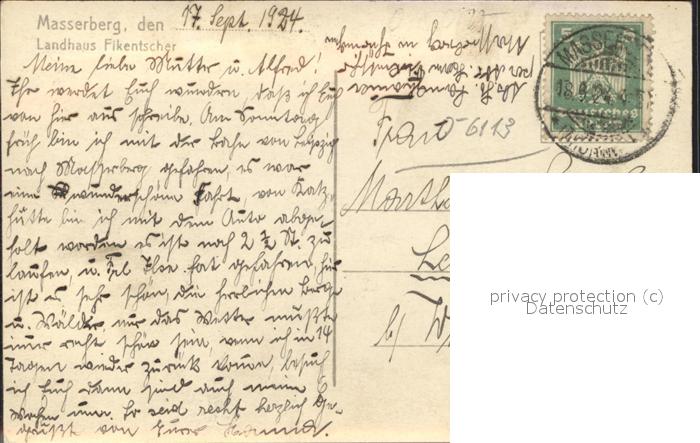 Masserberg, den 17. Sept. 1924.
Landhaus Fikentscher
Meine liebe Mutter u. Alfred!
Ihr werdet Euch wundern daß ich Euch
von hier aus schreibe. Am Sonntag
früh bin ich mit der Bahn von Leipzig
nach Masserberg gefahren, es war
eine wunderschöne Fahrt, von Katz-
hütte bin ich mit dem Auto abge-
holt worden es ist noch 2 ½ St. zu
laufen, u. Frl Ilse hat gefahren, hier
ist es sehr schön, die herrlichen Berge
u. Wälder, nur das Wetter müßte
immer recht schön sein, wenn ich in 14
Tagen wieder zurück komme, besuch
ich Euch dann sind auch meine 6
Wochen um. Ihr seid recht herzlich Ge-
grüßt von Eurer Hanna.
Masserberg in Thüringen
MASSERBERG
18.9.24
Frau 6113
Martha
Le
b/ W
privacy protection (c)
Datenschutz